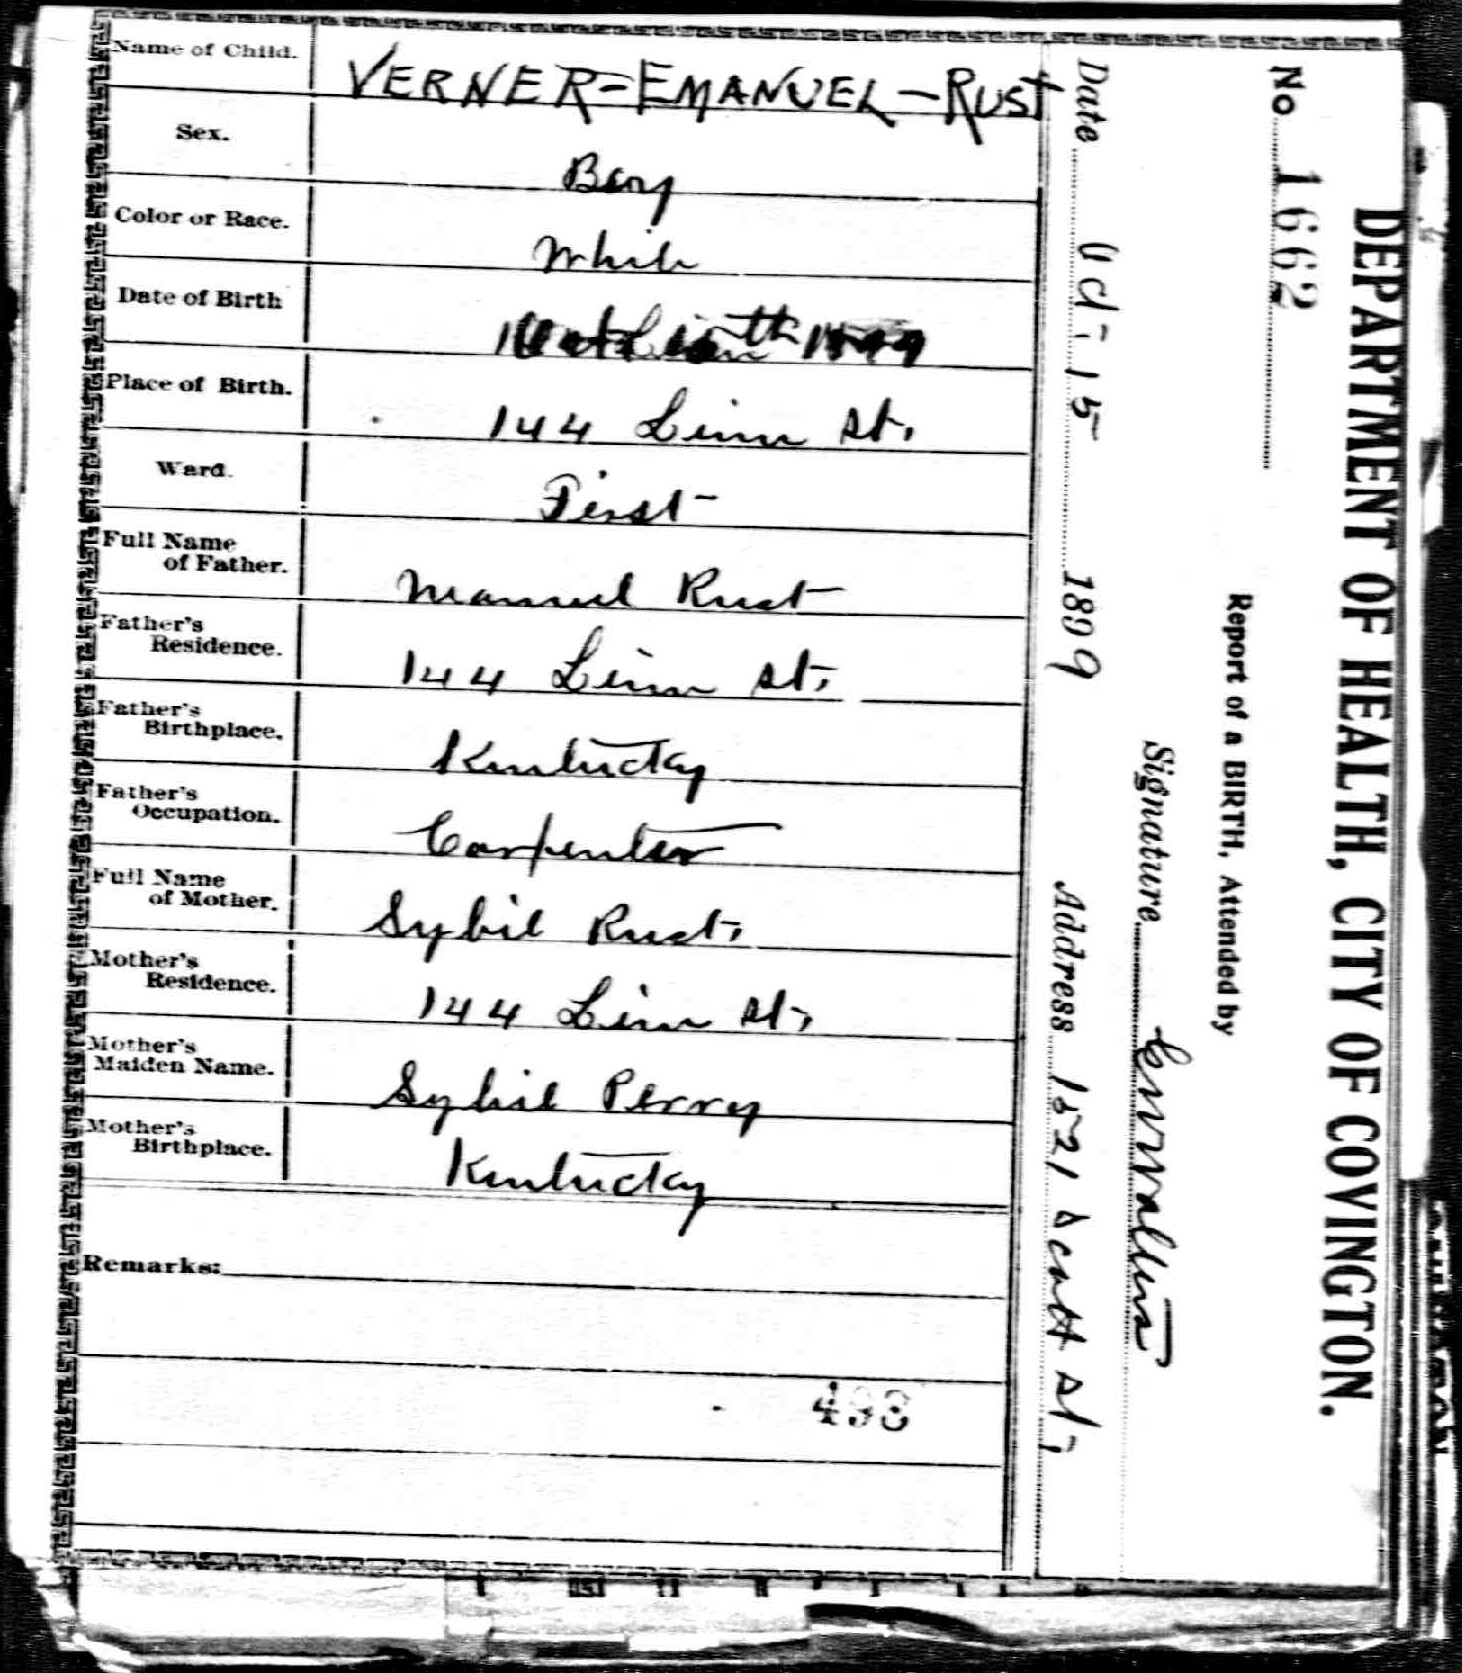 DEPARTMENT OF HEALTH, CITY OF COVINGTON.
No. 1662
Report of a BIRTH, Attended by
Signature
Date Oct. 15 1899 Address 1521 Scott St,
Name of Child. VERNER-EMANUEL-RUST
Sex. Boy
Color or Race. White
Date of Birth
Place of Birth. 144 Linn St.
Ward. First
Full Name
of Father. Manuel Rust
Father's
Residence. 144 Linn St,
Father's
Birthplace. Kentucky
Father's
Occupation. Carpenter
Full Name
of Mother. Sybil Rust,
Mother's
Residence. 144 Linn St,
Mother's
Maiden Name. Sybil Perry
Mother's
Birthplace. Kentucky
Remarks:
493